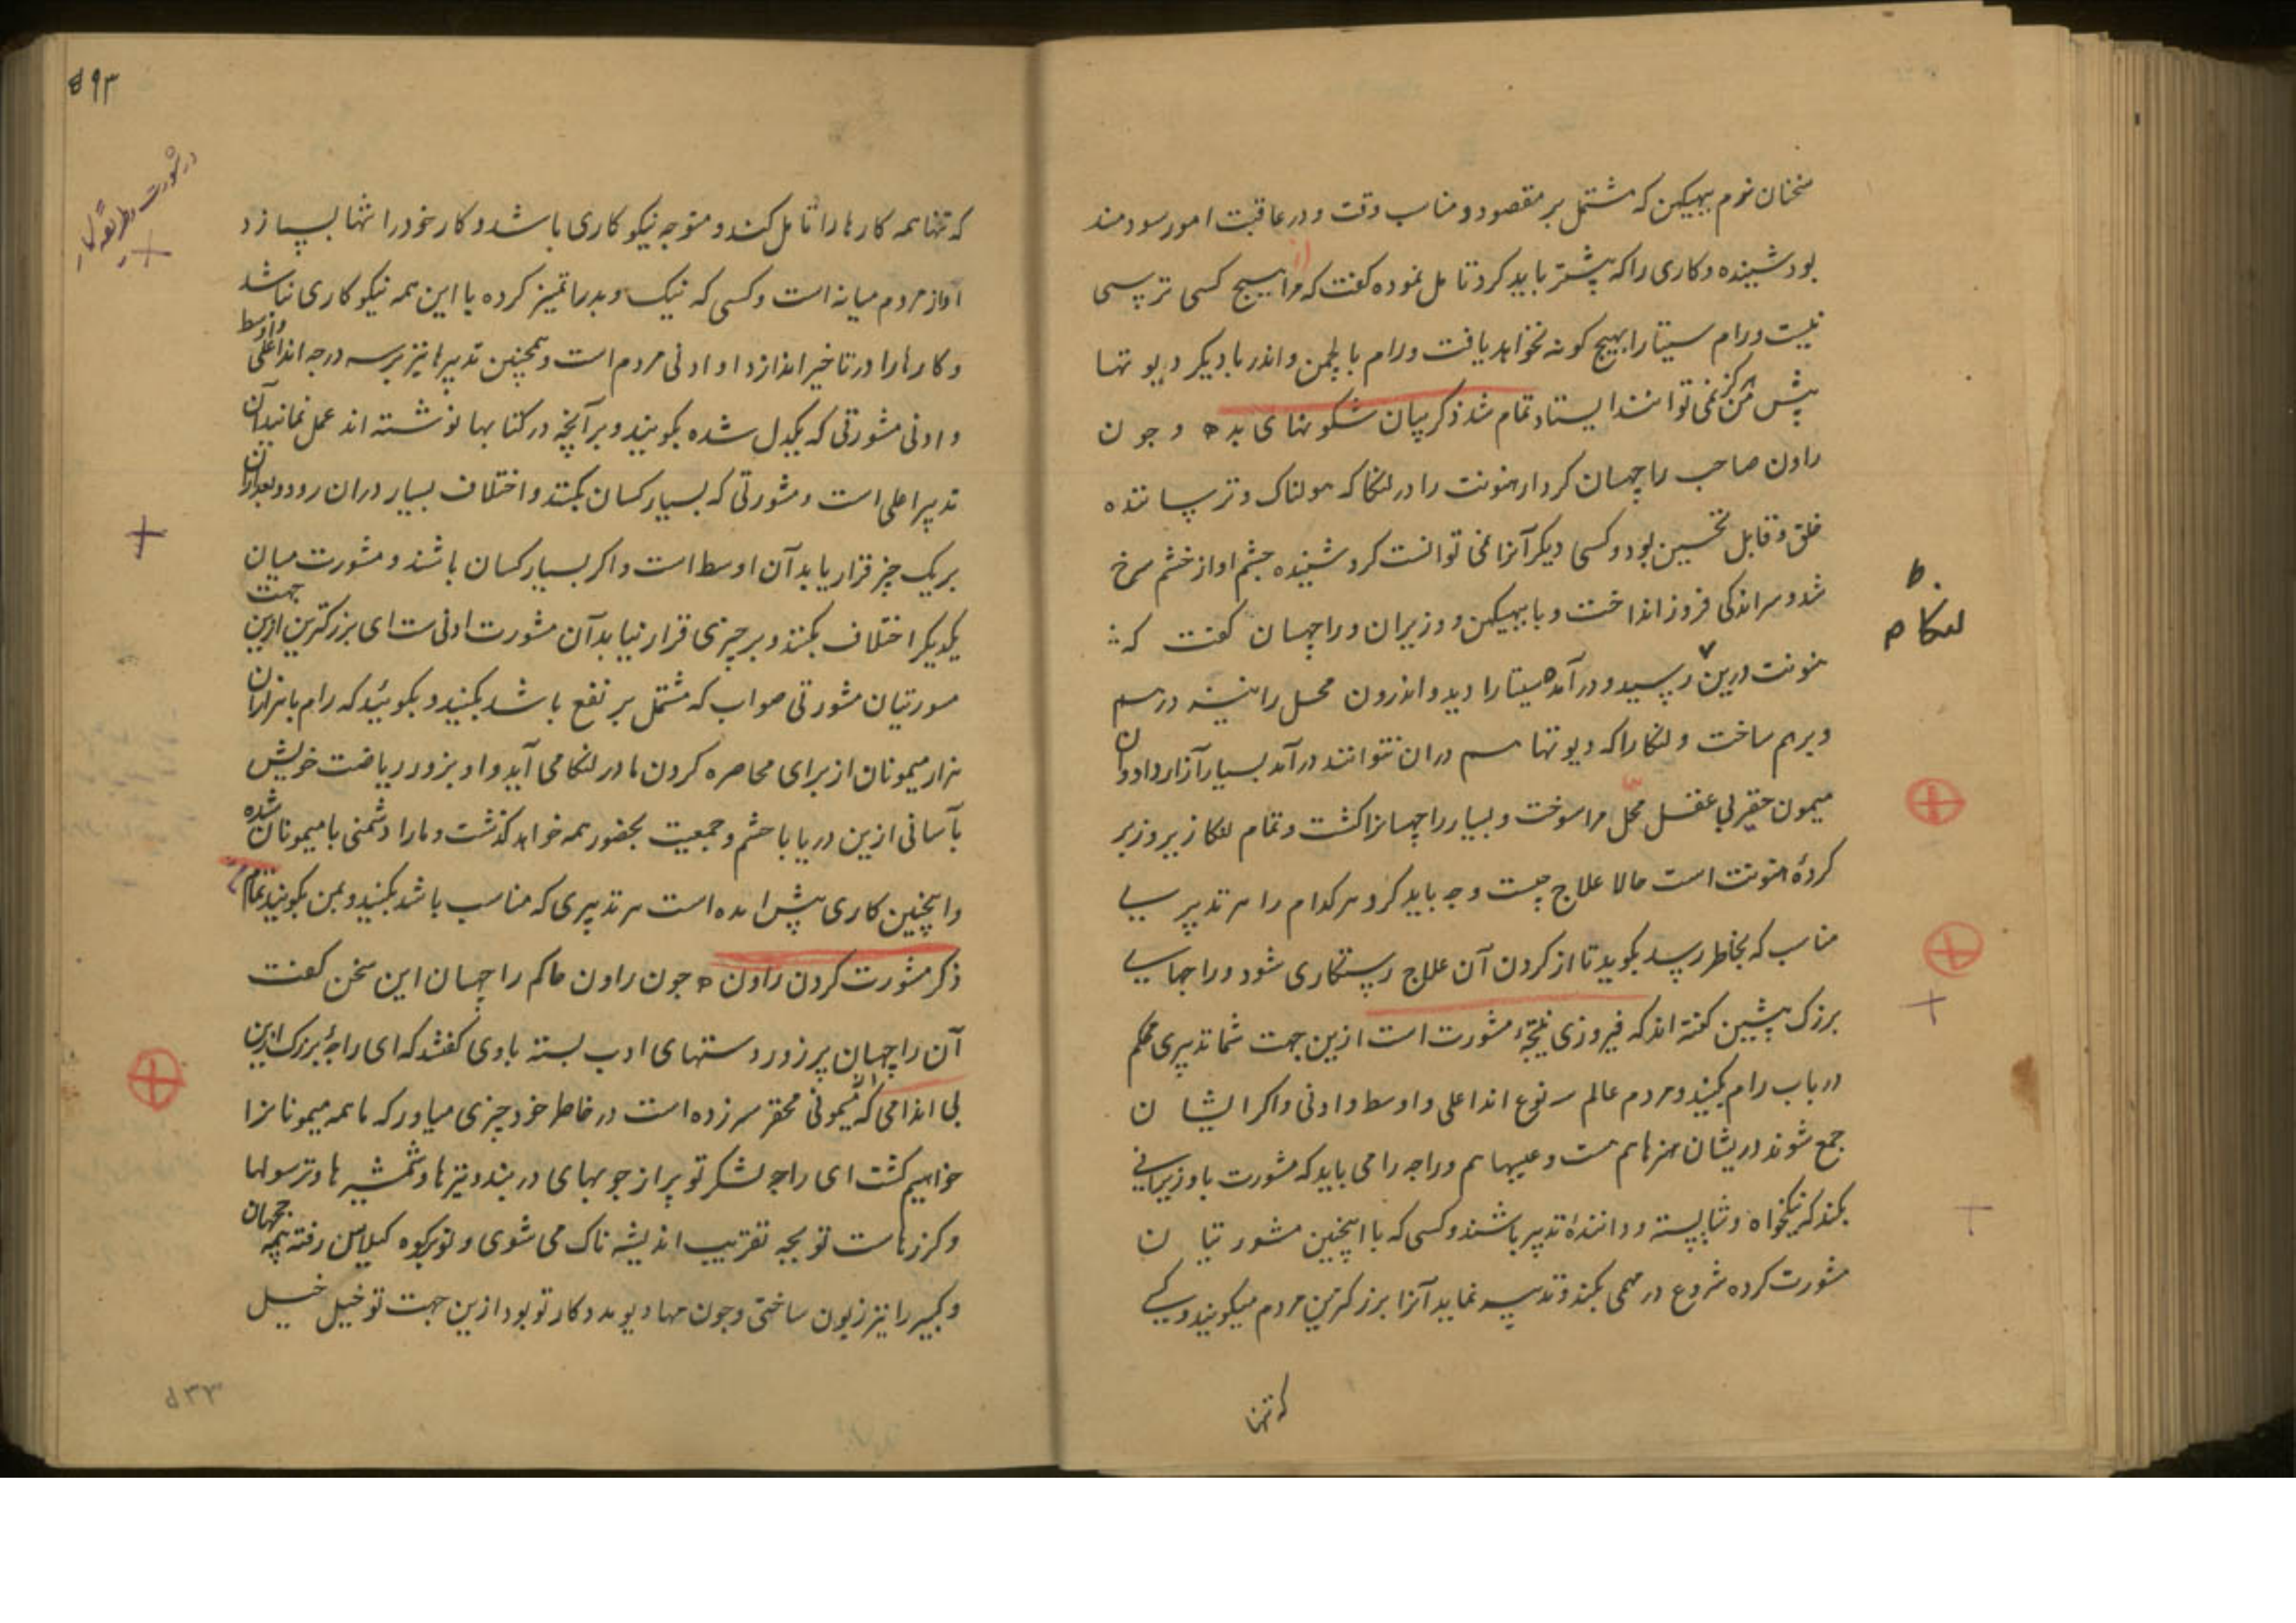 سخنان نرم ببهیکن که مشتمل بر مقصود و مناسب وقت و در عاقبت امور سودمند
بود شنیده و کاری را که پیشتر باید کرد تامل نموده کفت که مرا از هیچ کسی ترسی
نیست و رام سیتا را بهیچ کونه نخواهد یافت و رام با لچمن و اندر با دیکر دیوتها
پیش من هرکز نمی توانند ایستاد تمام شد ذکر بیان شکونهای بد ه و جون
راون صاحب راچهسان کردار هنونت را در لنکا که هولناک و ترساننده
خلق و قابل تحسین بود و کسی دیکر آنرا نمی توانست کرد شنیده چشم او از خشم سرخ
شد و سر اندکی فروز انداخت و با ببهیکن و وزیران و راچهسان کفت که
هنونت درین رسید و در آمده سیتا را دید و اندرون محل را نیز درهم
و برهم ساخت و لنکا را که دیوتها هم دران نتوانند درآمد بسیار آزار داد و آن
میمون حقیر بی عقل محل مرا سوخت و بسیار راچهسانرا کشت و تمام لنکا زیر و زبر
کردهٔ هنونت است حالا علاج چیست و چه باید کرد و هر کدام را هر تدبیرسی
مناسب که بخاطر رسد بکوید تا از کردن آن علاج رستکاری شود و راجهای
بزرک پیشین کفته اند که فیروزی نتیجهٔ مشورت است ازین جهت شما تدبیری محکم
در باب رام بکنید و مردم عالم سه نوع اند اعلی و اوسط و ادنی و اکر ایشان
جمع شوند دریشان هنرها هم هست و عیبها هم و راجه را می باید که مشورت با وزیرانی
بکند که نیکخواه و شایسته و دانندهٔ تدبیر باشند و کسی که با اینچنین مشورتیان
مشورت کرده شروع در مهمی بکند و تدبیر نماید آنرا بزرکترین مردم میکویند و کسی
که تنها
لنکا
۵۹۳
در مشورت و طریقه
که تنها همه کارها را تامل کند و متوجه نیکو کاری باشد و کار خود را تنها بسازد
او از مردم میانه است و کسی که نیک و بد را تمیز کرده با این همه نیکو کاری نباشد
و کارها را در تاخیر اندازد او ادنی مردم است و همچنین تدبیرها نیز بر سه درجه اند اعلی و اوسط
و ادنی مشورتی که یکدل شده بکویند و بر آنچه در کتابها نوشته اند عمل نمانید آن
تدبیر اعلی است و مشورتی که بسیار کسان بکنند و اختلاف بسیار دران رود و بعد ازان
بر یک چیز قرار یابد آن اوسط است و اکر بسیار کسان باشند و مشورت میان
یکدیکر اختلاف بکنند و بر چیزی قرار نیابد آن مشورت ادنی ست ای بزرکترین ازین جهت
مسورتیان مشورتی صواب که مشتمل بر نفع باشد بکنید و بکوئید که رام با هزاران
هزار میمونان از برای محاصره کردن ما در لنکا می آید و او بزور ریاضت خویش
بآسانی ازین دریا با حشم و جمعیت بحضور همه خواهد کذشت و ما را دشمنی با میمونان شده
و اینچنین کاری پیش امده است هر تدبیری که مناسب باشد بکنید و بمن بکویند تمام
ذکر مشورت کردن راون ه جون راون حاکم راچهسان این سخن کفت
آن راچهسان پر زور دستهای ادب بسته باوی کفتند که ای راجهٔ بزرک ازین
بی اندامی که از میمونی محقر سر زده است در خاطر خود چیزی میاور که ما همه میمونانرا
خواهیم کشت ای راجه لشکر تو پر از جوبهای در بند و تیزها و شمشیرها و ترسولها
و کرزهاست تو بچه تقریب اندیشه ناک می شوی و تو بر کوه کیلاس رفته بر همه جچهان
و کبیر را نیز زبون ساختی و جون مهادیو مددکار تو بود ازین جهت تو خیل خیل
۵۳۳